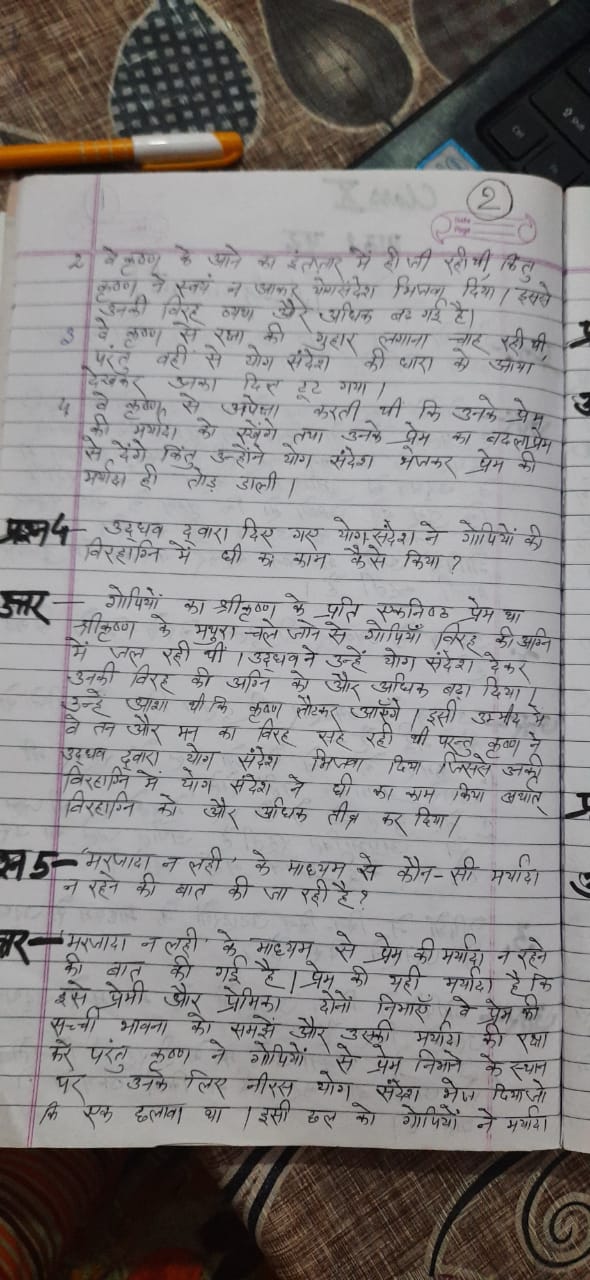 2
2 वे कृष्ण के आने का इंतजार में ही जी रही थी, किंतु
कृष्ण ने स्वयं न आकर योगसंदेश भिजवा दिया। इससे
उनकी विरह व्यथा और अधिक बढ़ गई है।
3 वे कृष्ण से रक्षा की गुहार लगाना चाह रही थी,
परंतु वही से योग संदेश की धारा को आया
देखकर उनका दिल टूट गया।
4 वे कृष्ण से अपेक्षा करती थी कि उनके प्रेम
की मर्यादा को रखेंगे तथा उनके प्रेम का बदला प्रेम
से देंगे किंतु उन्होंने योग संदेश भेजकर प्रेम की
मर्यादा ही तोड़ डाली।
प्रश्न 4 – उद्धव द्वारा दिए गए योग-संदेश ने गोपियों की
विरहाग्नि में घी का काम कैसे किया?
उत्तर – गोपियों का श्रीकृष्ण के प्रति एकनिष्ठ प्रेम था
श्रीकृष्ण के मथुरा चले जाने से गोपियाँ विरह की अग्नि
में जल रही थीं। उद्धव ने उन्हें योग संदेश देकर
उनकी विरह की अग्नि को और अधिक बढ़ा दिया।
उन्हें आशा थी कि कृष्ण लौटकर आएँगे। इसी उम्मीद में
वे तन और मन का विरह सह रही थी परन्तु कृष्ण ने
उद्धव द्वारा योग संदेश भिजवा दिया जिससे उनकी
विरहाग्नि में योग संदेश ने घी का काम किया अर्थात्
विरहाग्नि को और अधिक तीव्र कर दिया।
श्न 5 – 'मरजादा न लही' के माध्यम से कौन-सी मर्यादा
न रहने की बात की जा रही है?
त्तर – 'मरजादा न लही' के माध्यम से प्रेम की मर्यादा न रहने
की बात की गई है। प्रेम की यही मर्यादा है कि
इसे प्रेमी और प्रेमिका दोनों निभाएँ। वे प्रेम की
सच्ची भावना को समझें और उसकी मर्यादा की रक्षा
करें परंतु कृष्ण ने गोपियों से प्रेम निभाने के स्थान
पर उनके लिए नीरस योग संदेश भेज दिया जो
कि एक छलावा था। इसी छल को गोपियों ने मर्यादा